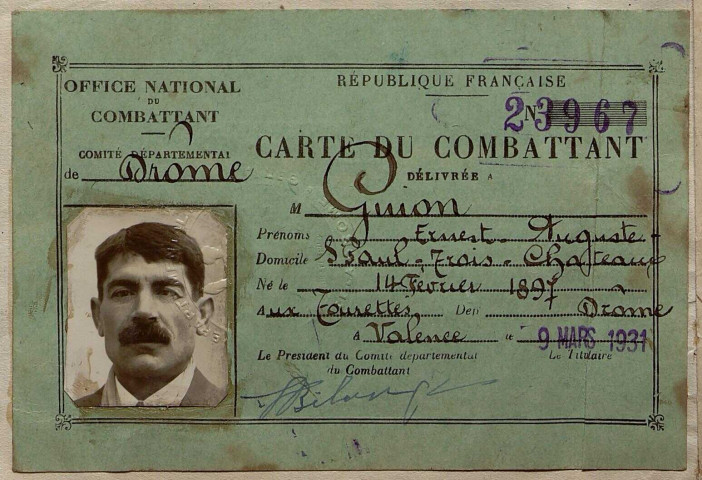 OFFICE NATIONAL
DU
COMBATTANT
COMITÉ DÉPARTEMENTAL
de Drôme
RÉPUBLIQUE FRANÇAISE
N° 23967
CARTE DU COMBATTANT
DÉLIVRÉE A
M Guion
Prénoms Ernest - Auguste -
Domicile St Paul - Trois - Chateaux
Né le 14 Février 1897
A ux Tourettes, Dép Drôme
A Valence le 9 MARS 1931
Le Président du Comité départemental
du Combattant
Le Titulaire